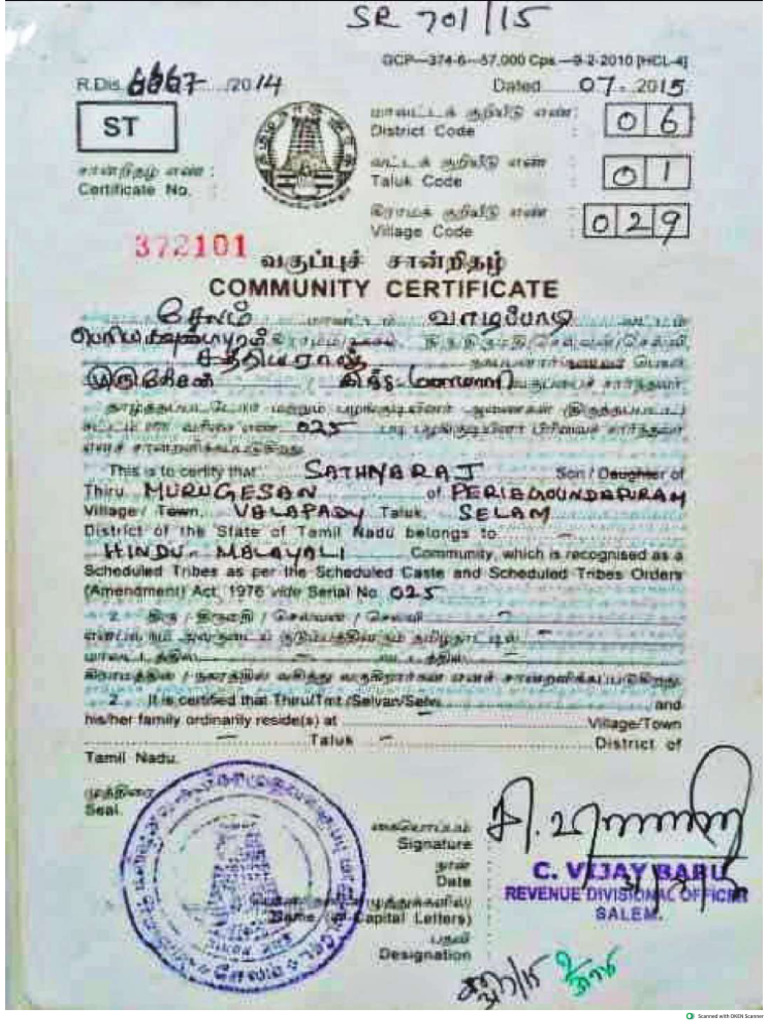 SR 701/15
GCP—374-6—57,000 Cps.—9-2-2010 [HCL-4]
R.Dis. 6667 /2014
Dated 07. 2015
ST
மாவட்டக் குறியீடு எண்:
District Code : 06
சான்றிதழ் எண் :
Certificate No. :
வட்டக் குறியீடு எண் :
Taluk Code : 01
கிராமக் குறியீடு எண் :
Village Code : 029
372101
வகுப்புச் சான்றிதழ்
COMMUNITY CERTIFICATE
சேலம் மாவட்டம் வாழப்பாடி வட்டம்
சத்தியராஜ்
முருகேசன்
தாழ்த்தப்பட்டோர் மற்றும் பழங்குடியினர் ஆணைகள் (திருத்தப்பட்ட)
சட்டம் வரிசை எண் 025 படி பழங்குடியினர் பிரிவைச் சார்ந்தவர்
எனச் சான்றளிக்கப்படுகிறது.
This is to certify that SATHYARAJ Son / Daughter of
Thiru MURUGESAN of PERIAGOUNDAPURAM
Village / Town, VALAPADY Taluk, SELAM
District of the State of Tamil Nadu belongs to
HINDU - MALAYALI Community, which is recognised as a
Scheduled Tribes as per the Scheduled Caste and Scheduled Tribes Orders
(Amendment) Act, 1976 vide Serial No. 025
2. திரு / திருமதி / செல்வன் / செல்வி
என்பவரும் அவருடைய குடும்பத்தினரும் தமிழ்நாட்டில்
மாவட்டத்தில் வட்டத்தில்
கிராமத்தில் / நகரத்தில் வசித்து வருகிறார்கள் எனச் சான்றளிக்கப்படுகிறது.
2. It is certified that Thiru/Tmt./Selvan/Selvi and
his/her family ordinarily reside(s) at Village/Town
Taluk District of
Tamil Nadu.
முத்திரை
Seal.
கையொப்பம்
Signature
நாள்
Date
C. VIJAY BABU
REVENUE DIVISIONAL OFFICER
SALEM.
Name (in Capital Letters)
பதவி
Designation
Scanned with OKEN Scanner